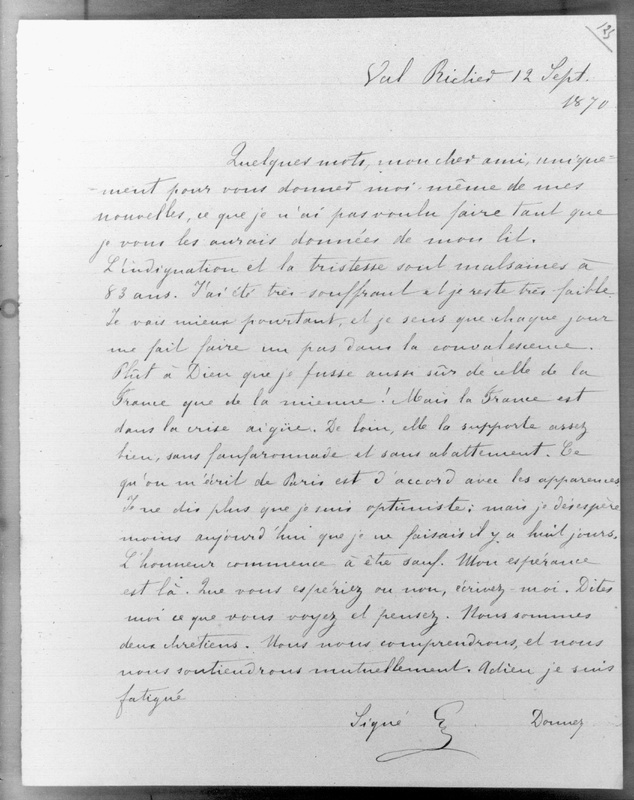 125
Val Richer 12 Sept.
1870
Quelques mots, mon cher ami, unique=
-ment pour vous donner moi-même de mes
nouvelles, ce que je n'ai pas voulu faire tant que
je vous les aurais données de mon lit.
L'indignation et la tristesse sont malsaines à
83 ans. J'ai été très souffrant et je reste très faible.
Je vais mieux pourtant, et je sens que chaque jour
me fait faire un pas dans la convalescence.
Plût à Dieu que je fusse aussi sûr de celle de la
France que de la mienne! Mais la France est
dans la crise aigüe. De loin, elle la supporte assez
bien, sans fanfaronnade et sans abattement. Ce
qu'on m'écrit de Paris est d'accord avec les apparences
Je ne dis plus que je suis optimiste; mais je désespère
moins aujourd'hui que je ne faisais il y a huit jours.
L'honneur commence à être sauf. Mon espérance
est là. Que vous espériez ou non, écrivez-moi. Dites
moi ce que vous voyez et pensez. Nous sommes
deux chrétiens. Nous nous comprendrons, et nous
nous soutiendrons mutuellement. Adieu je suis
fatigué
Signé Donnez